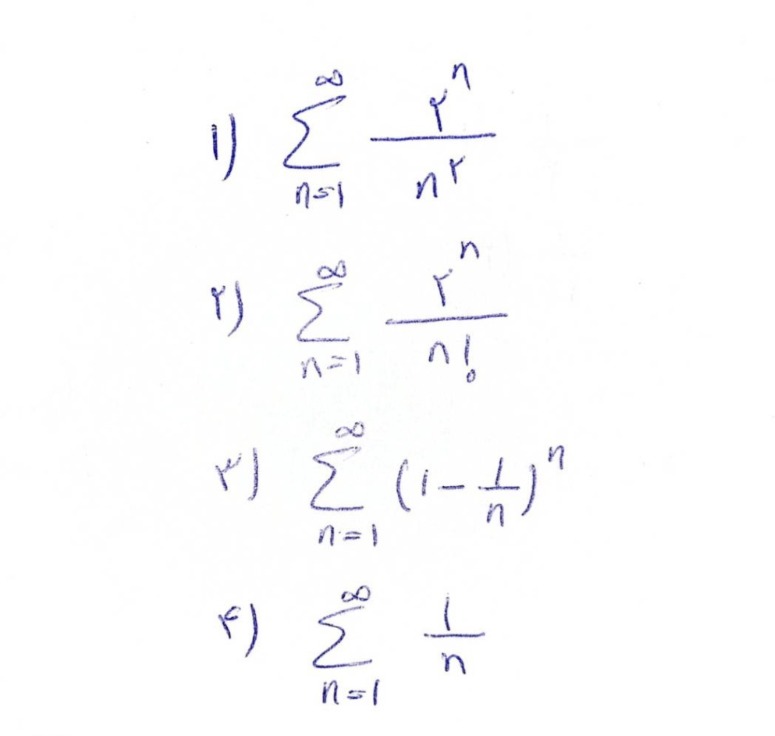 ۱) $\sum_{n=1}^{\infty} \frac{۲^n}{n^۲}$
۲) $\sum_{n=1}^{\infty} \frac{۲^n}{n!}$
۳) $\sum_{n=1}^{\infty} (1-\frac{1}{n})^n$
۴) $\sum_{n=1}^{\infty} \frac{1}{n}$